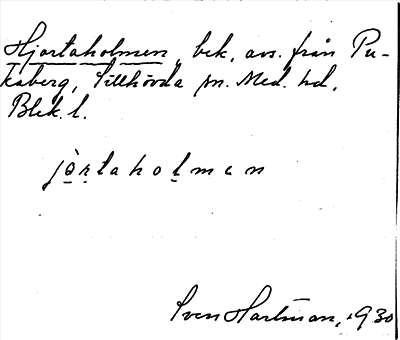 Hjortaholmen, bek. avs. från Pu-
kaberg, Tillhövda sn. Med. hd,
Blek. l.
jò̱ṟtahoḻmen
Sven Hartman, 1930